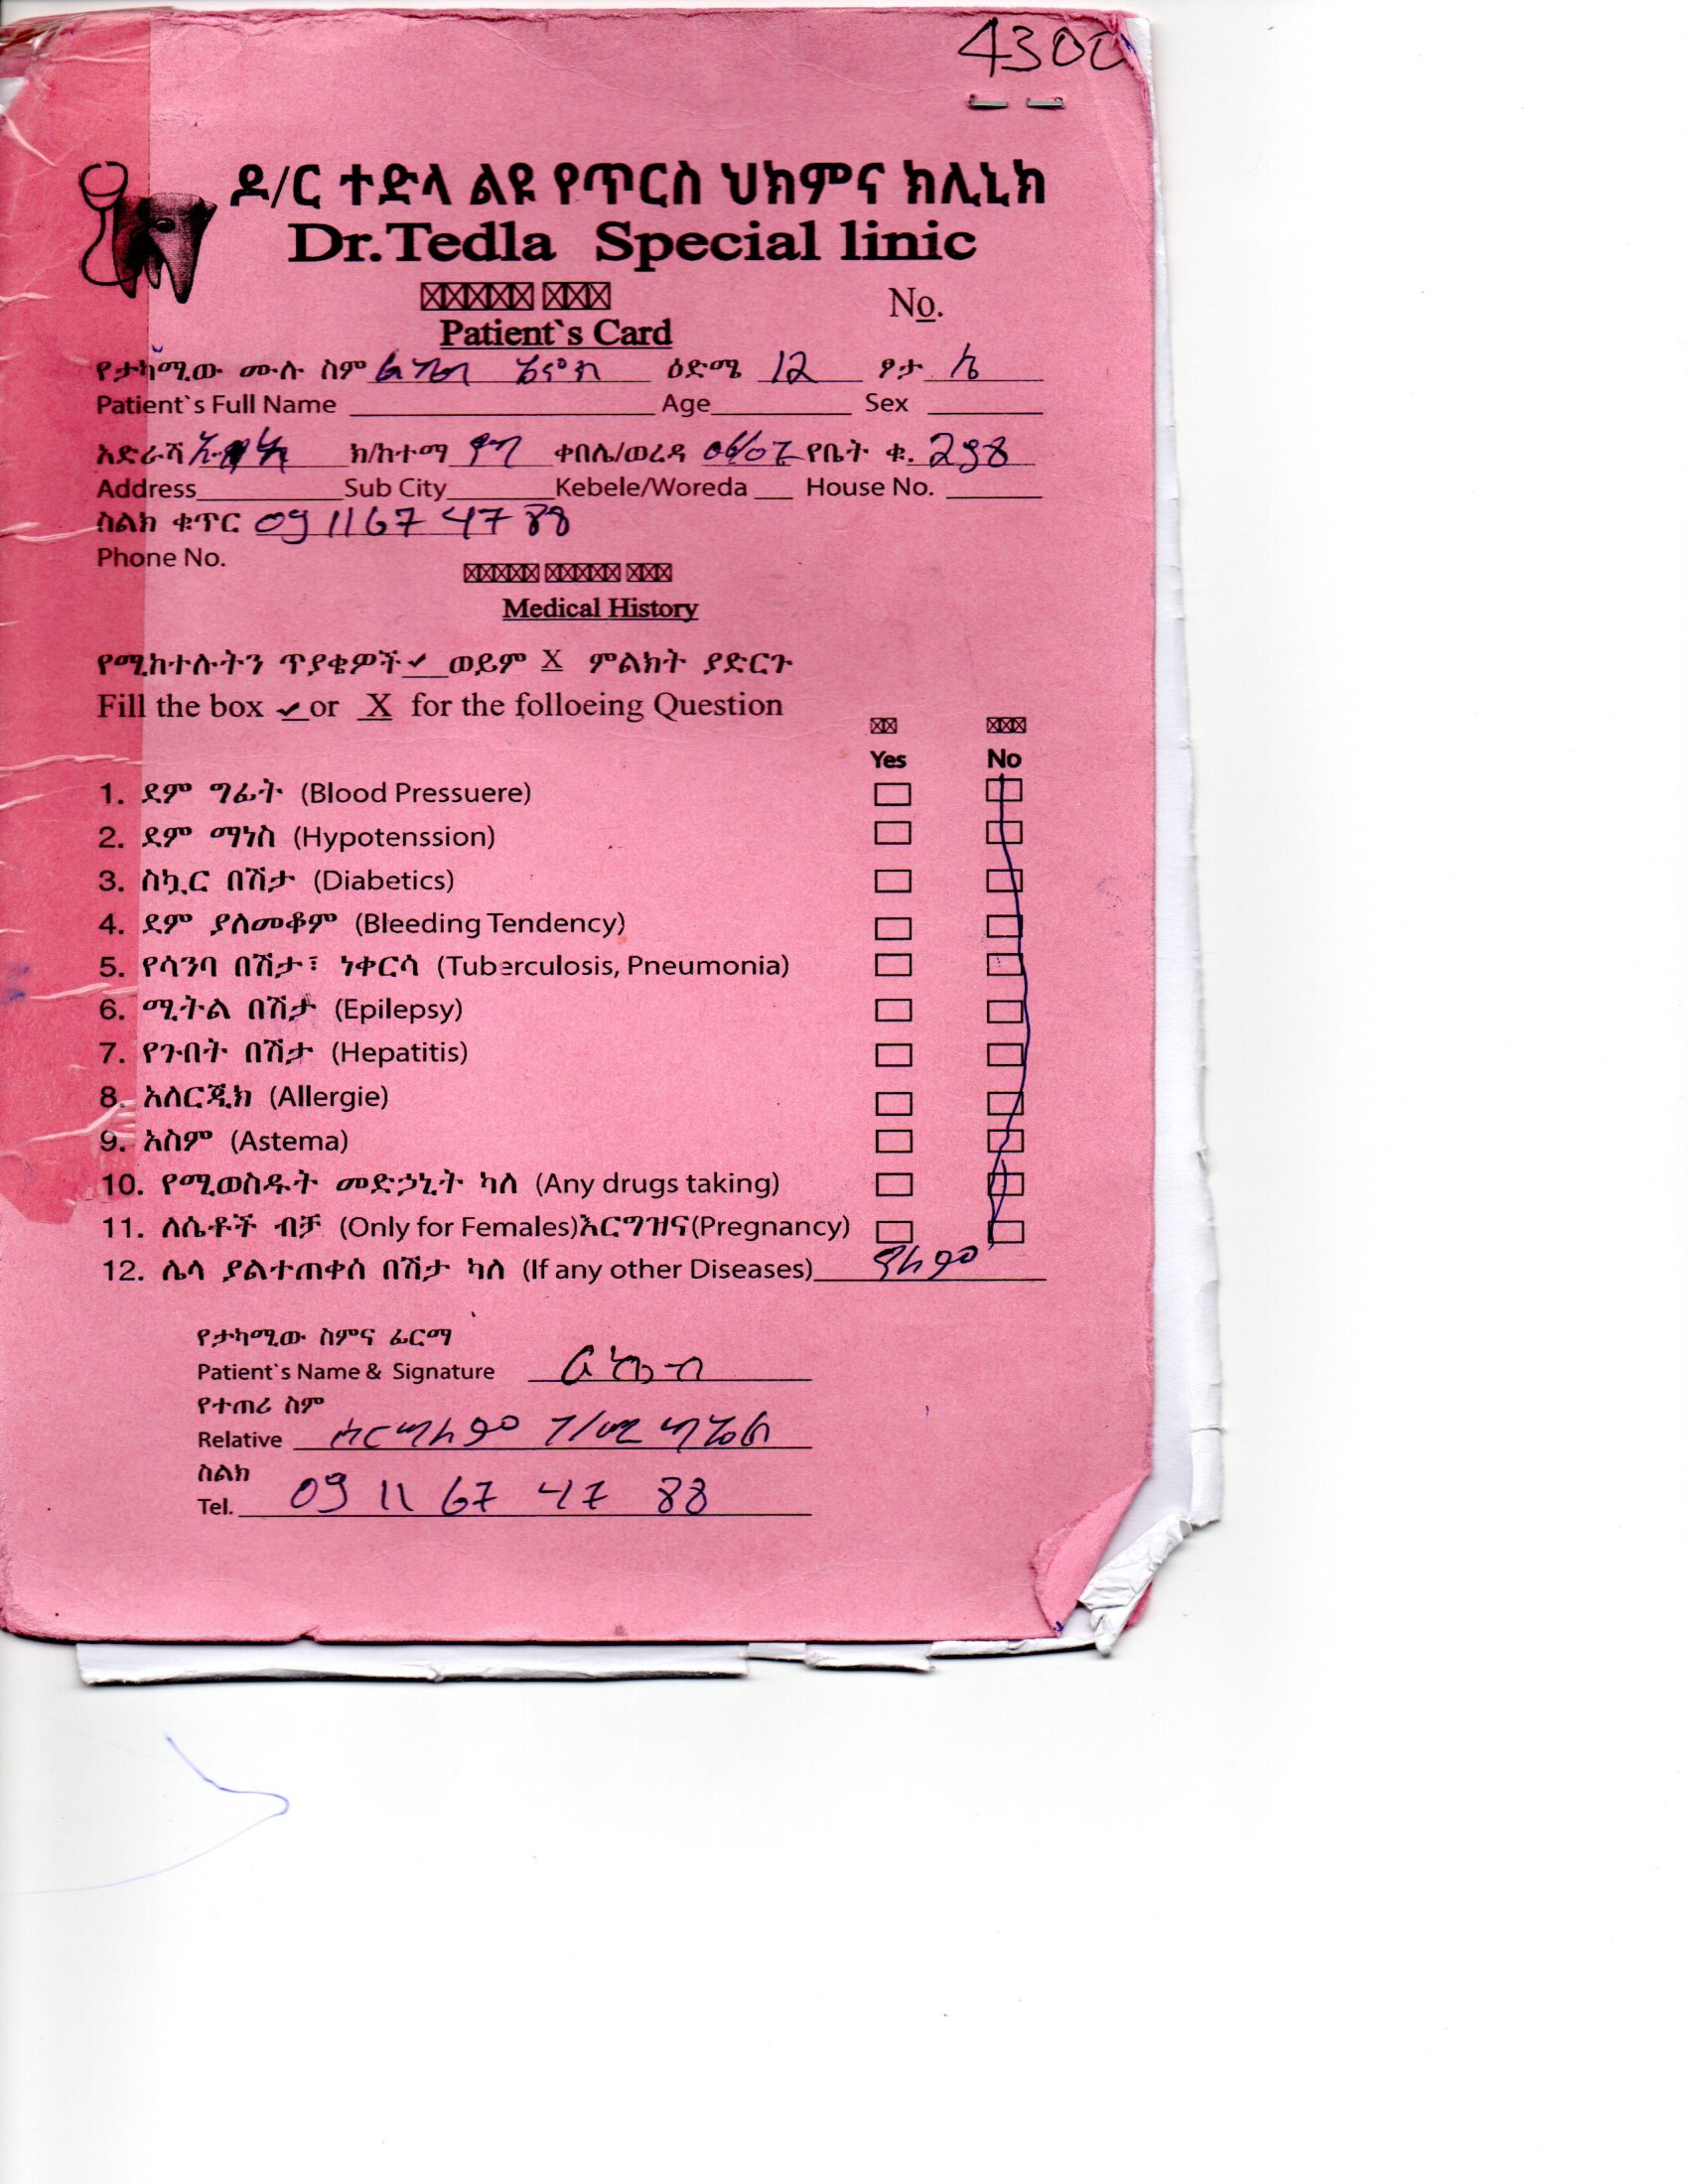 4300
ዶ/ር ተድላ ልዩ የጥርስ ህክምና ክሊኒክ
Dr.Tedla Special linic
No.
Patient`s Card
የታካሚው ሙሉ ስም ዕድሜ 12 ፆታ ሴ
Patient`s Full Name Age Sex
አድራሻ ክ/ከተማ የካ ቀበሌ/ወረዳ የቤት ቁ.
Address Sub City Kebele/Woreda House No.
ስልክ ቁጥር 0911674788
Phone No.
Medical History
የሚከተሉትን ጥያቄዎች ✓ ወይም X ምልክት ያድርጉ
Fill the box ✓ or X for the folloeing Question
Yes No
1. ደም ግፊት (Blood Pressuere)
2. ደም ማነስ (Hypotenssion)
3. ስኳር በሽታ (Diabetics)
4. ደም ያለመቆም (Bleeding Tendency)
5. የሳንባ በሽታ፣ ነቀርሳ (Tuberculosis, Pneumonia)
6. ሚትል በሽታ (Epilepsy)
7. የጉበት በሽታ (Hepatitis)
8. አለርጂክ (Allergie)
9. አስም (Astema)
10. የሚወስዱት መድኃኒት ካለ (Any drugs taking)
11. ለሴቶች ብቻ (Only for Females)እርግዝና(Pregnancy)
12. ሌላ ያልተጠቀሰ በሽታ ካለ (If any other Diseases) የለም
የታካሚው ስምና ፊርማ
Patient`s Name & Signature
የተጠሪ ስም
Relative
ስልክ
Tel. 09 11 67 47 88